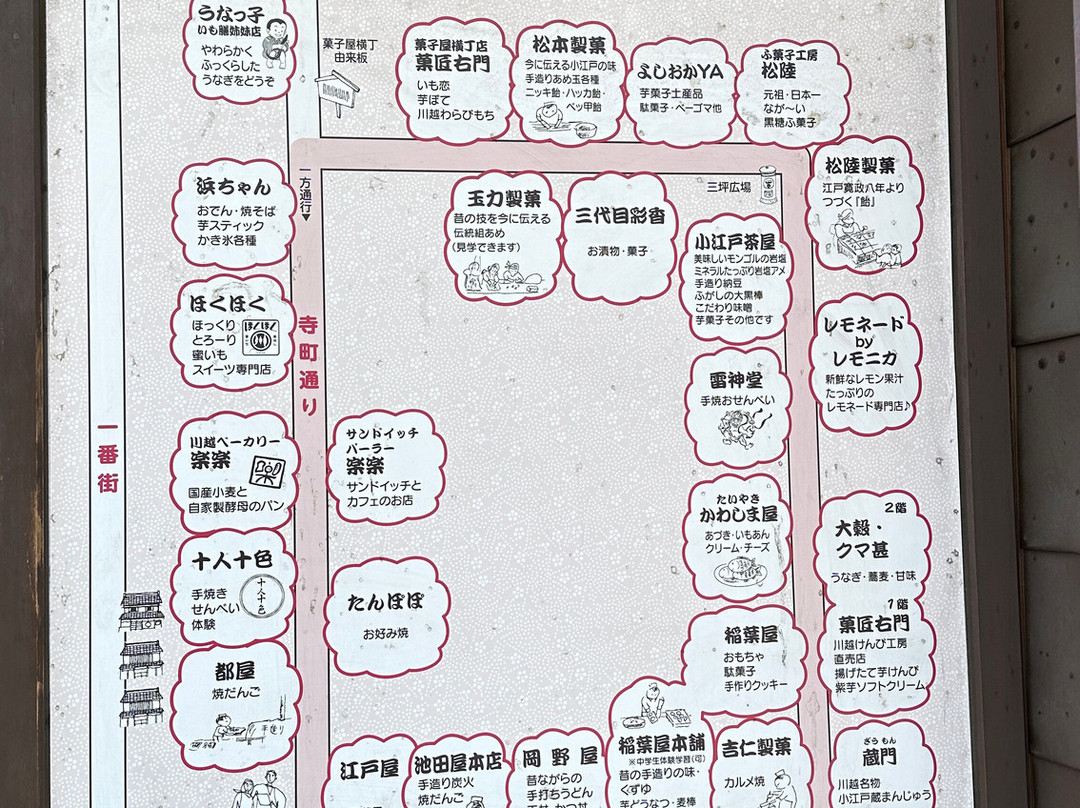 うなっ子
いも膳姉妹店
やわらかく
ふっくらした
うなぎをどうぞ
菓子屋横丁
由来板
菓子屋横丁店
菓匠右門
いも恋
芋ぽて
川越わらびもち
松本製菓
今に伝える小江戸の味
手造りあめ玉各種
ニッキ飴・ハッカ飴・
べッ甲飴
よしおかYA
芋菓子土産品
駄菓子・ベーゴマ他
ふ菓子工房
松陸
元祖・日本一
なが〜い
黒糖ふ菓子
一方通行
浜ちゃん
おでん・焼そば
芋スティック
かき氷各種
玉力製菓
昔の技を今に伝える
伝統組あめ
(見学できます)
三代目彩香
お漬物・菓子
三坪広場
松陸製菓
江戸寛政八年より
つづく「飴」
小江戸茶屋
美味しいモンゴルの岩塩
ミネラルたっぷり岩塩アメ
手造り納豆
ふがしの大黒棒
こだわり味噌
芋菓子その他です
ほくほく
ほっくり
とろーり
蜜いも
スイーツ専門店
ほくほく
寺町通り
レモネード
by
レモニカ
新鮮なレモン果汁
たっぷりの
レモネード専門店♪
雷神堂
手焼おせんべい
一番街
川越ベーカリー
楽楽
楽
国産小麦と
自家製酵母のパン
サンドイッチ
パーラー
楽楽
サンドイッチと
カフェのお店
たいやき
かわしま屋
あづき・いもあん
クリーム・チーズ
2階
大穀・
クマ甚
うなぎ・蕎麦・甘味
1階
菓匠右門
川越けんぴ工房
直売店
揚げたて芋けんぴ
紫芋ソフトクリーム
十人十色
手焼き
せんべい
体験
十人十色
たんぽぽ
お好み焼
稲葉屋
おもちゃ
駄菓子
手作りクッキー
都屋
焼だんご
手造り
江戸屋
池田屋本店
手造り炭火
焼だんご
岡野屋
昔ながらの
手打ちうどん
稲葉屋本舗
※中学生体験学習(可)
昔の手造りの味・
くずゆ
芋どうなつ・麦棒
吉仁製菓
カルメ焼
ぎらもん
蔵門
川越名物
小江戸蔵まんじゅう